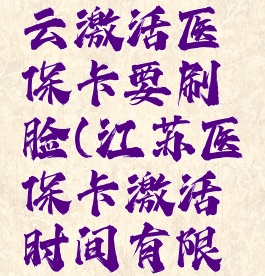 云激活医
保卡要刷
脸(江苏医
保卡激活
时间有限